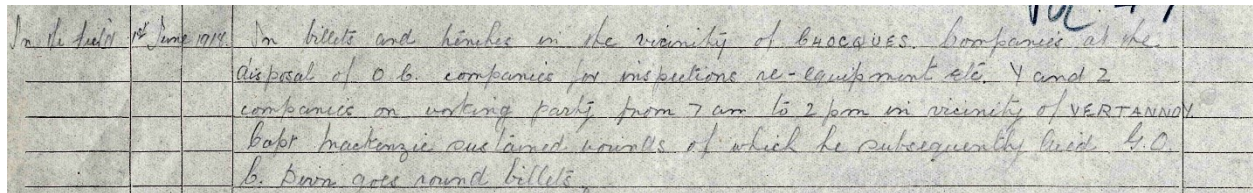 In the field 1st June 1918. In billets and trenches in the vicinity of CHOCQUES. Companies at the
disposal of O C. companies for inspections re-equipment etc. Y and Z
companies on working party from 7 am to 2 pm in vicinity of VERTANNOY.
Capt Mackenzie sustained wounds of which he subsequently died G.O.
C. Divn goes round billets